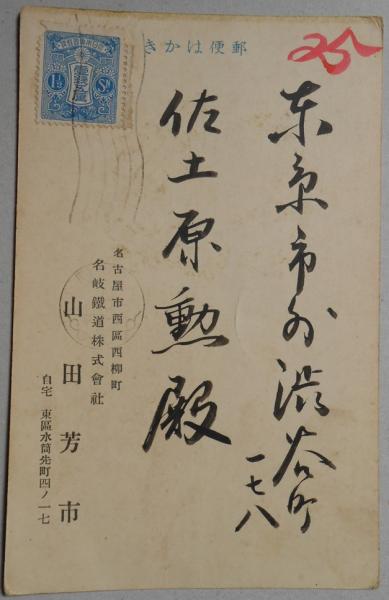 郵便はかき
25
1½ Sn
東京市外澁谷町
一七八
佐土原勳殿
名古屋市西區西柳町
名岐鐵道株式會社
山田芳市
自宅 東區水筒先町四ノ一七